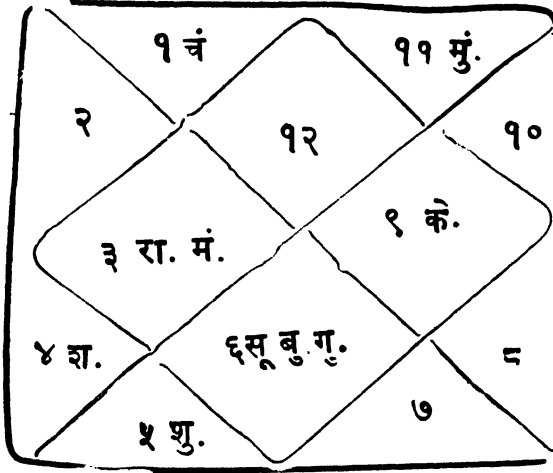 १ चं
११ मुं.
२
१२
१०
३ रा. मं.
९ के.
४ श.
६सू बु गु.
८
५ शु.
७